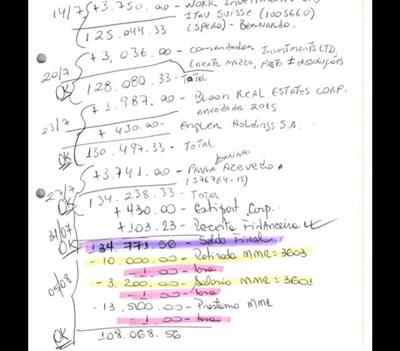 14/7 +3.750.00 - Work Investment
Itau Suisse (1005660)
125.044.33 (SPERO) - Bernardo.
20/7 +3,036.00 - comendador Investments LTD,
OK 128.080.33 - Total
23/7 +1.987.00 - Bloon REAL ESTATES CORP.
anuidades 2015
+430.00 - Englen Holdings S.A.
OK 130.497.33 - Total
27/7 +3.741.00 - PAULA Acevedo
(576764-15)
134.238.33 - Total
31/07 +430.00 - Corp.
+103.23 - Receita Financeira
OK 134.771.56 - Saldo Final
05/08 -10.000.00 - Retirada MML = 3603
-1.00 - taxa
-3.200.00 - Salario MML = 3601
-1.00 - taxa
-13.500.00 - Prestamo MML
-1.00 - taxa
OK 108.068.56